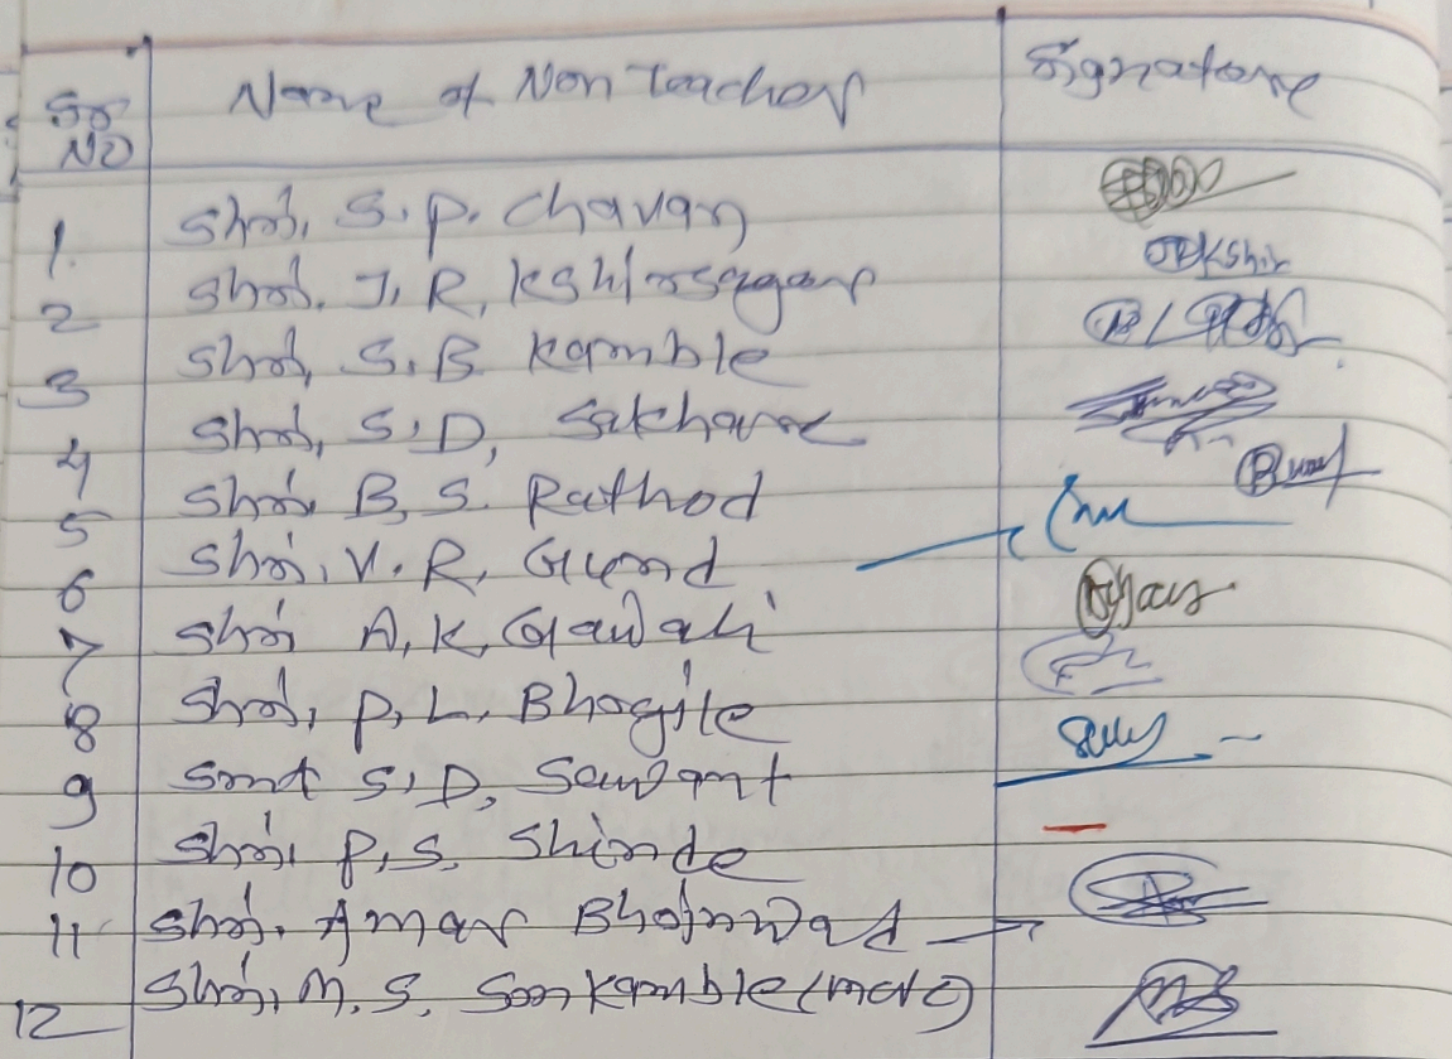 Sr No Name of Non Teacher Signature
1. Shri. S. P. Chavan
2 Shri. J. R. Kshirsagar
3 Shri. S. B. Kamble
4 Shri. S. D. Sakhare
5 Shri. B. S. Rathod
6 Shri. V. R. Gund
7 Shri A. K. Gawali
8 Shri. P. L. Bhogile
9 Smt S. D. Sawant
10 Shri. P. S. Shinde
11 Shri. Amar Bhojnwad
12 Shri. M. S. Sonkamble